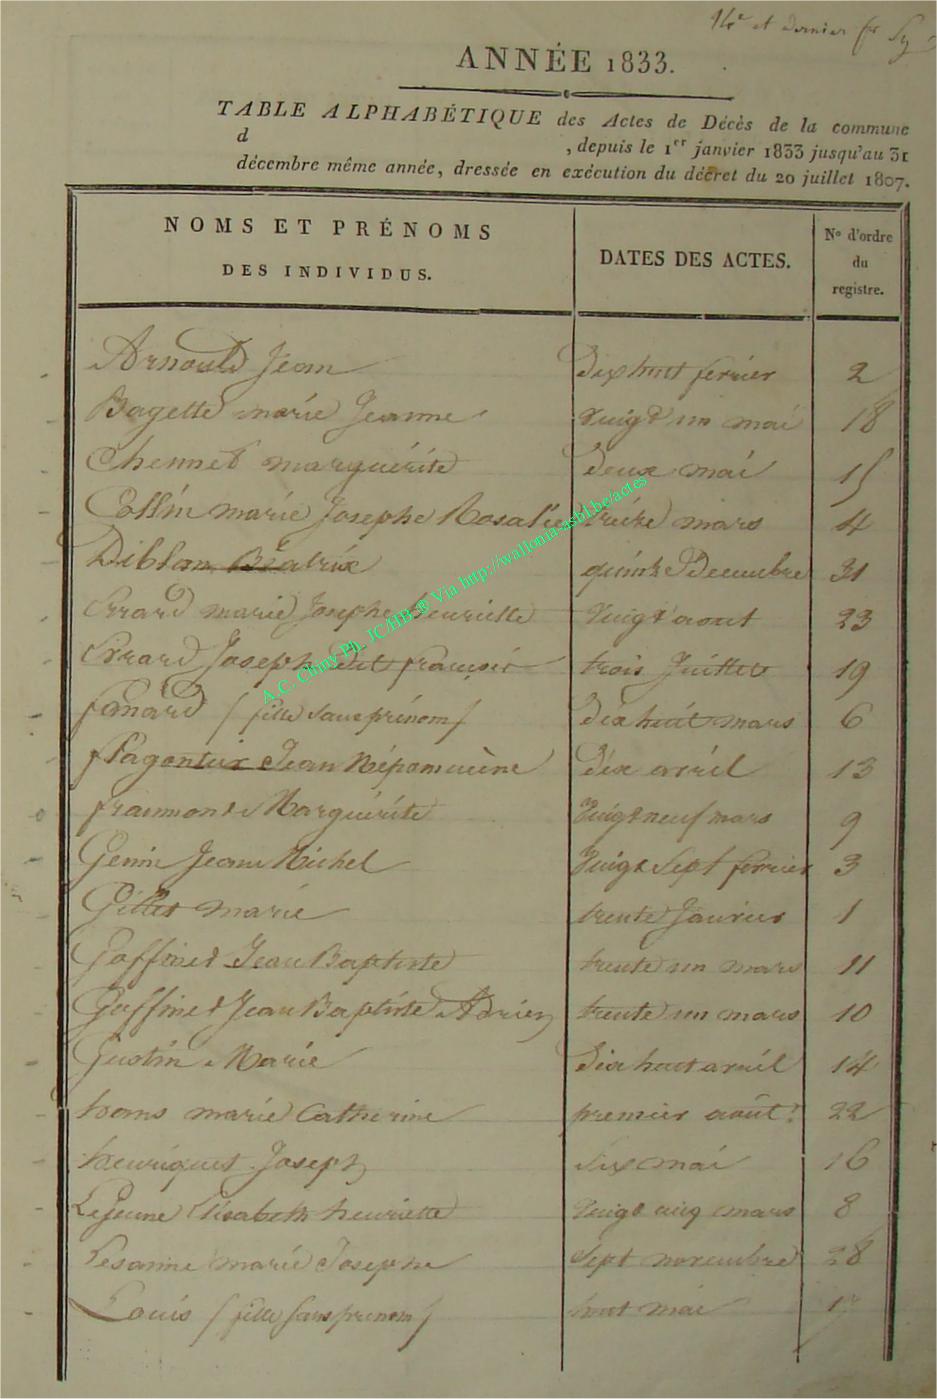 14e et dernier f.r Sy
ANNÉE 1833.
TABLE ALPHABÉTIQUE des Actes de Décès de la commune
d , depuis le 1er janvier 1833 jusqu'au 31
décembre même année, dressée en exécution du décret du 20 juillet 1807.
NOMS ET PRÉNOMS DES INDIVIDUS. DATES DES ACTES. No d'ordre du registre.
Arnould Jean Dix huit fevrier 2
Bagette marie Jeanne Vingt un mai 18
Chennet marguérite Deux mai 15
Collin marie Josephe Rosalie treize mars 4
Diblan Béatrix quinze Decembre 31
Errard marie Josephe henriette Vingt aout 23
Errard Joseph dit françois trois Juillet 19
fanard (fille sans prénom) Dix huit mars 6
flagontier Jean Népomucène Dix avril 13
fraumont Marguérite Vingt neuf mars 9
Genin Jean Michel Vingt Sept fevrier 3
Gillet marie trente Janvier 1
Goffinet Jean Baptiste trente un mars 11
Goffinet Jean Baptiste Adrien trente un mars 10
Justin Marie Dix huit avril 14
hans marie Catherine premier août 22
henriquet Joseph Six mai 16
Lejeune Elisabeth henriette Vingt cinq mars 8
Lesanne marie Josephe Sept novembre 28
Louis (fille sans prenom) huit mai
A.C. Chiny Ph. JC/HB @ Via http://wallonia-asbl.be/actes